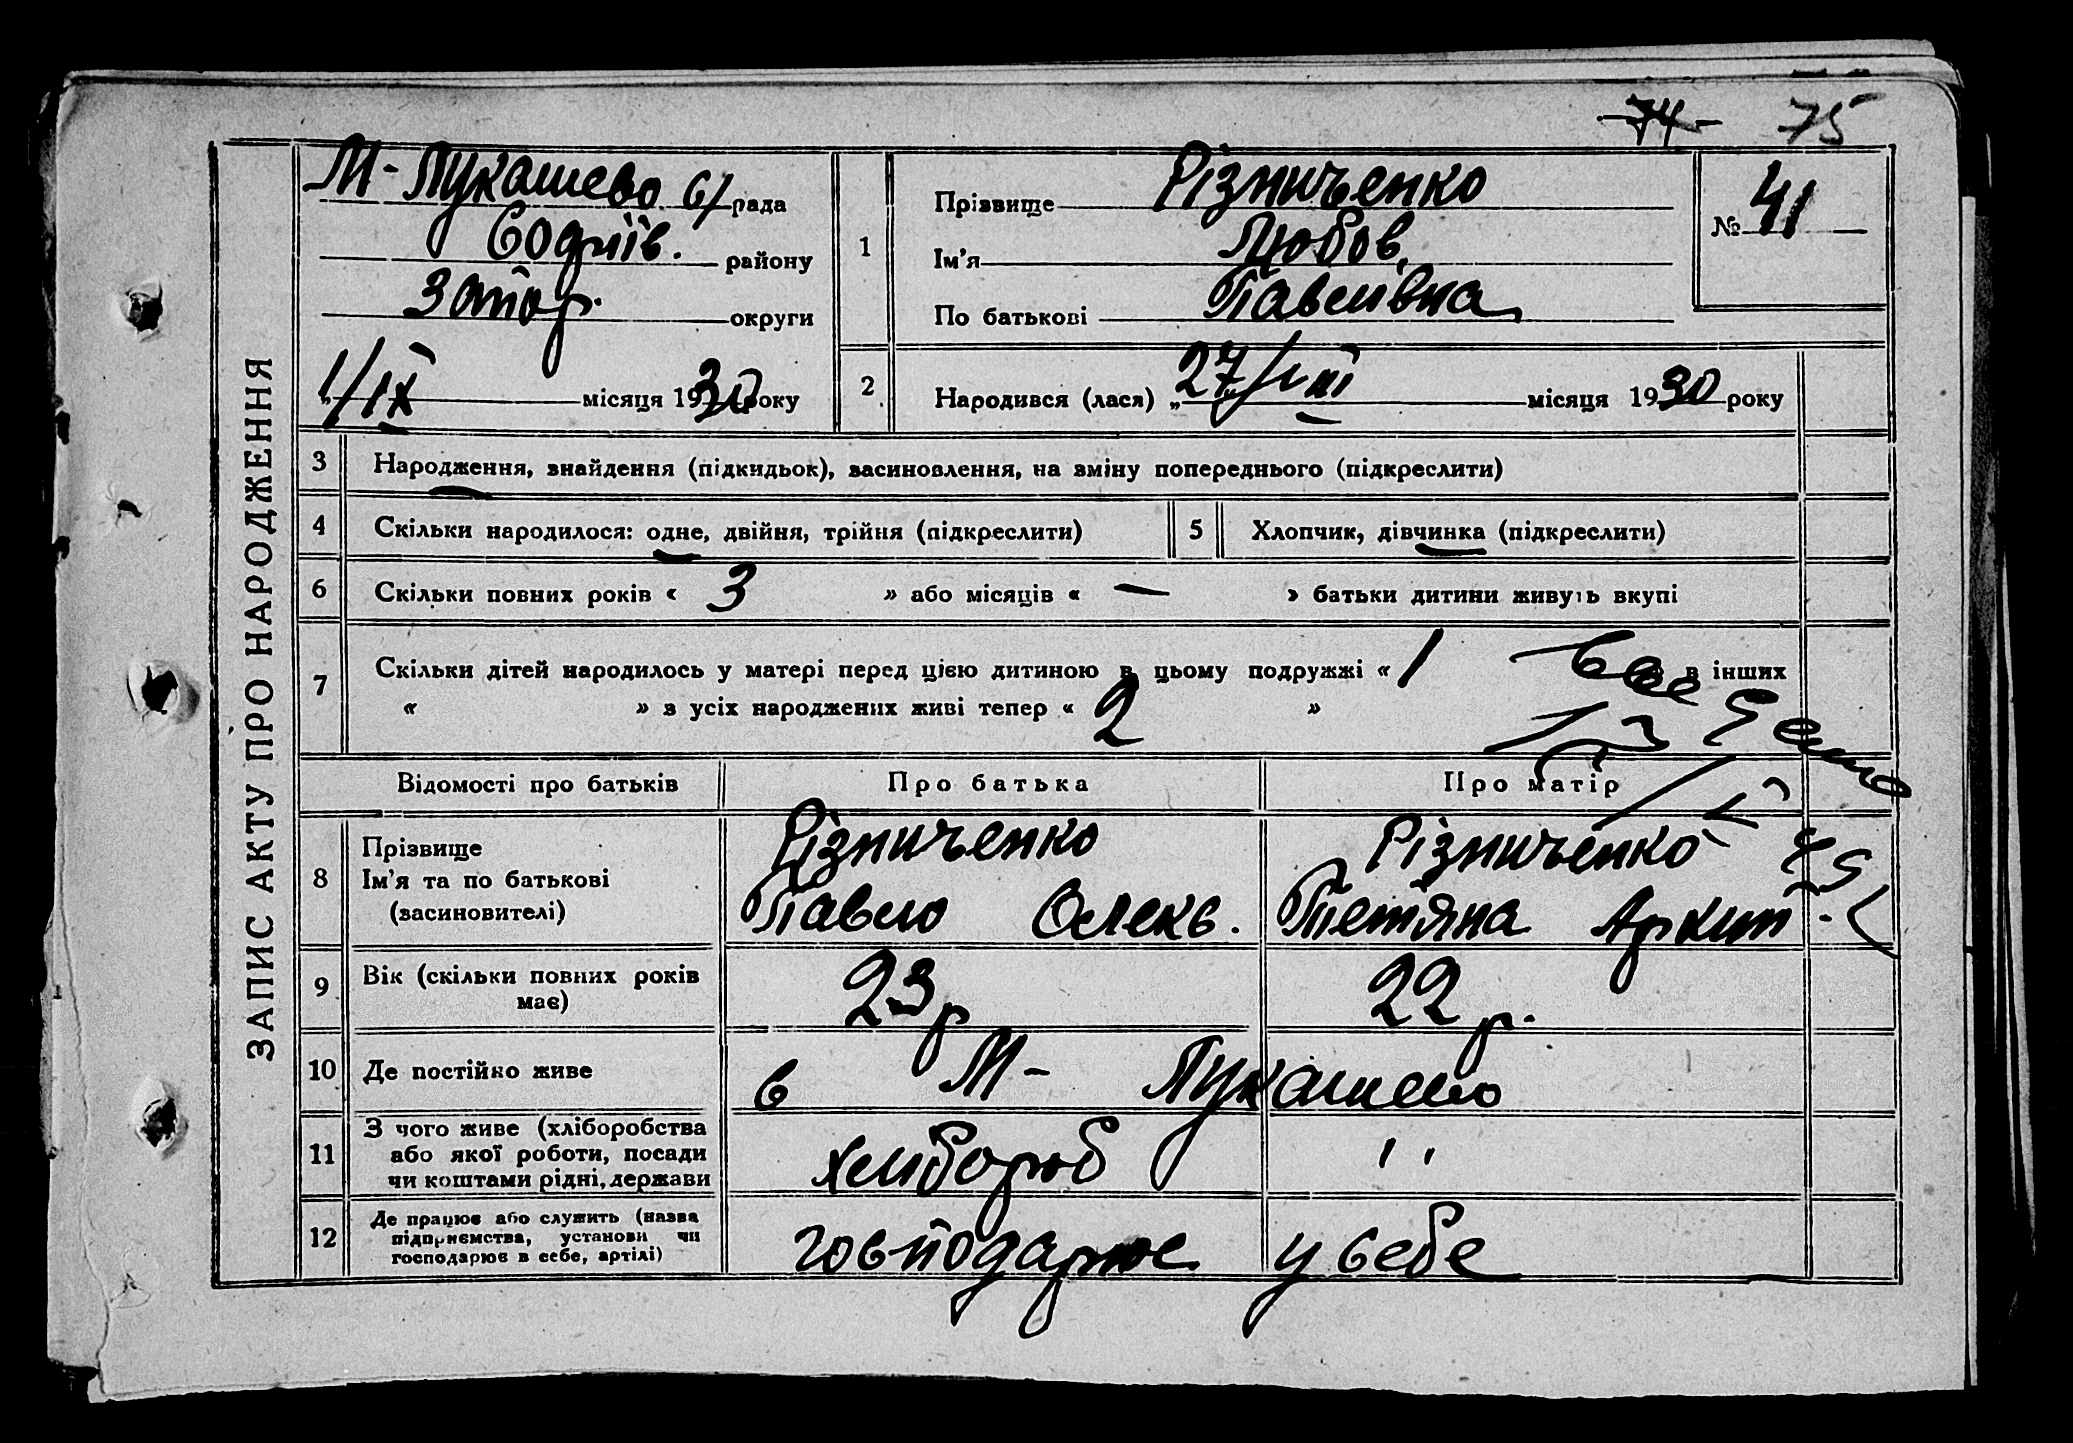 74 75
ЗАПИС АКТУ ПРО НАРОДЖЕННЯ
М-Лукашево с/рада
Софіїв. району
Запор. округи
„1/IX місяця 1930 року
1
Прізвище Різниченко
Ім'я Любов
По батькові Павлівна
№ 41
2
Народився (лася) „27/VIII місяця 1930 року
3 Народження, знайдення (підкидьок), засиновлення, на зміну попереднього (підкреслити)
4 Скільки народилося: одне, двійня, трійня (підкреслити) 5 Хлопчик, дівчинка (підкреслити)
6 Скільки повних років « 3 » або місяців « — » батьки дитини живуть вкупі
7 Скільки дітей народилось у матері перед цією дитиною в цьому подружжі « 1 в інших
« » з усіх народжених живі тепер « 2 »
Відомості про батьків Про батька Про матір
8 Прізвище
Ім'я та по батькові
(засиновителі)
Різниченко
Павло Олекс.
Різниченко
Тетяна Архип.
9 Вік (скільки повних років
має)
23 р 22 р.
10 Де постійно живе в М-Лукашево
11 З чого живе (хліборобства
або якої роботи, посади
чи коштами рідні, держави
хлібороб "
12 Де працює або служить (назва
підприємства, установи чи
господарює в себе, артілі)
господарює у себе